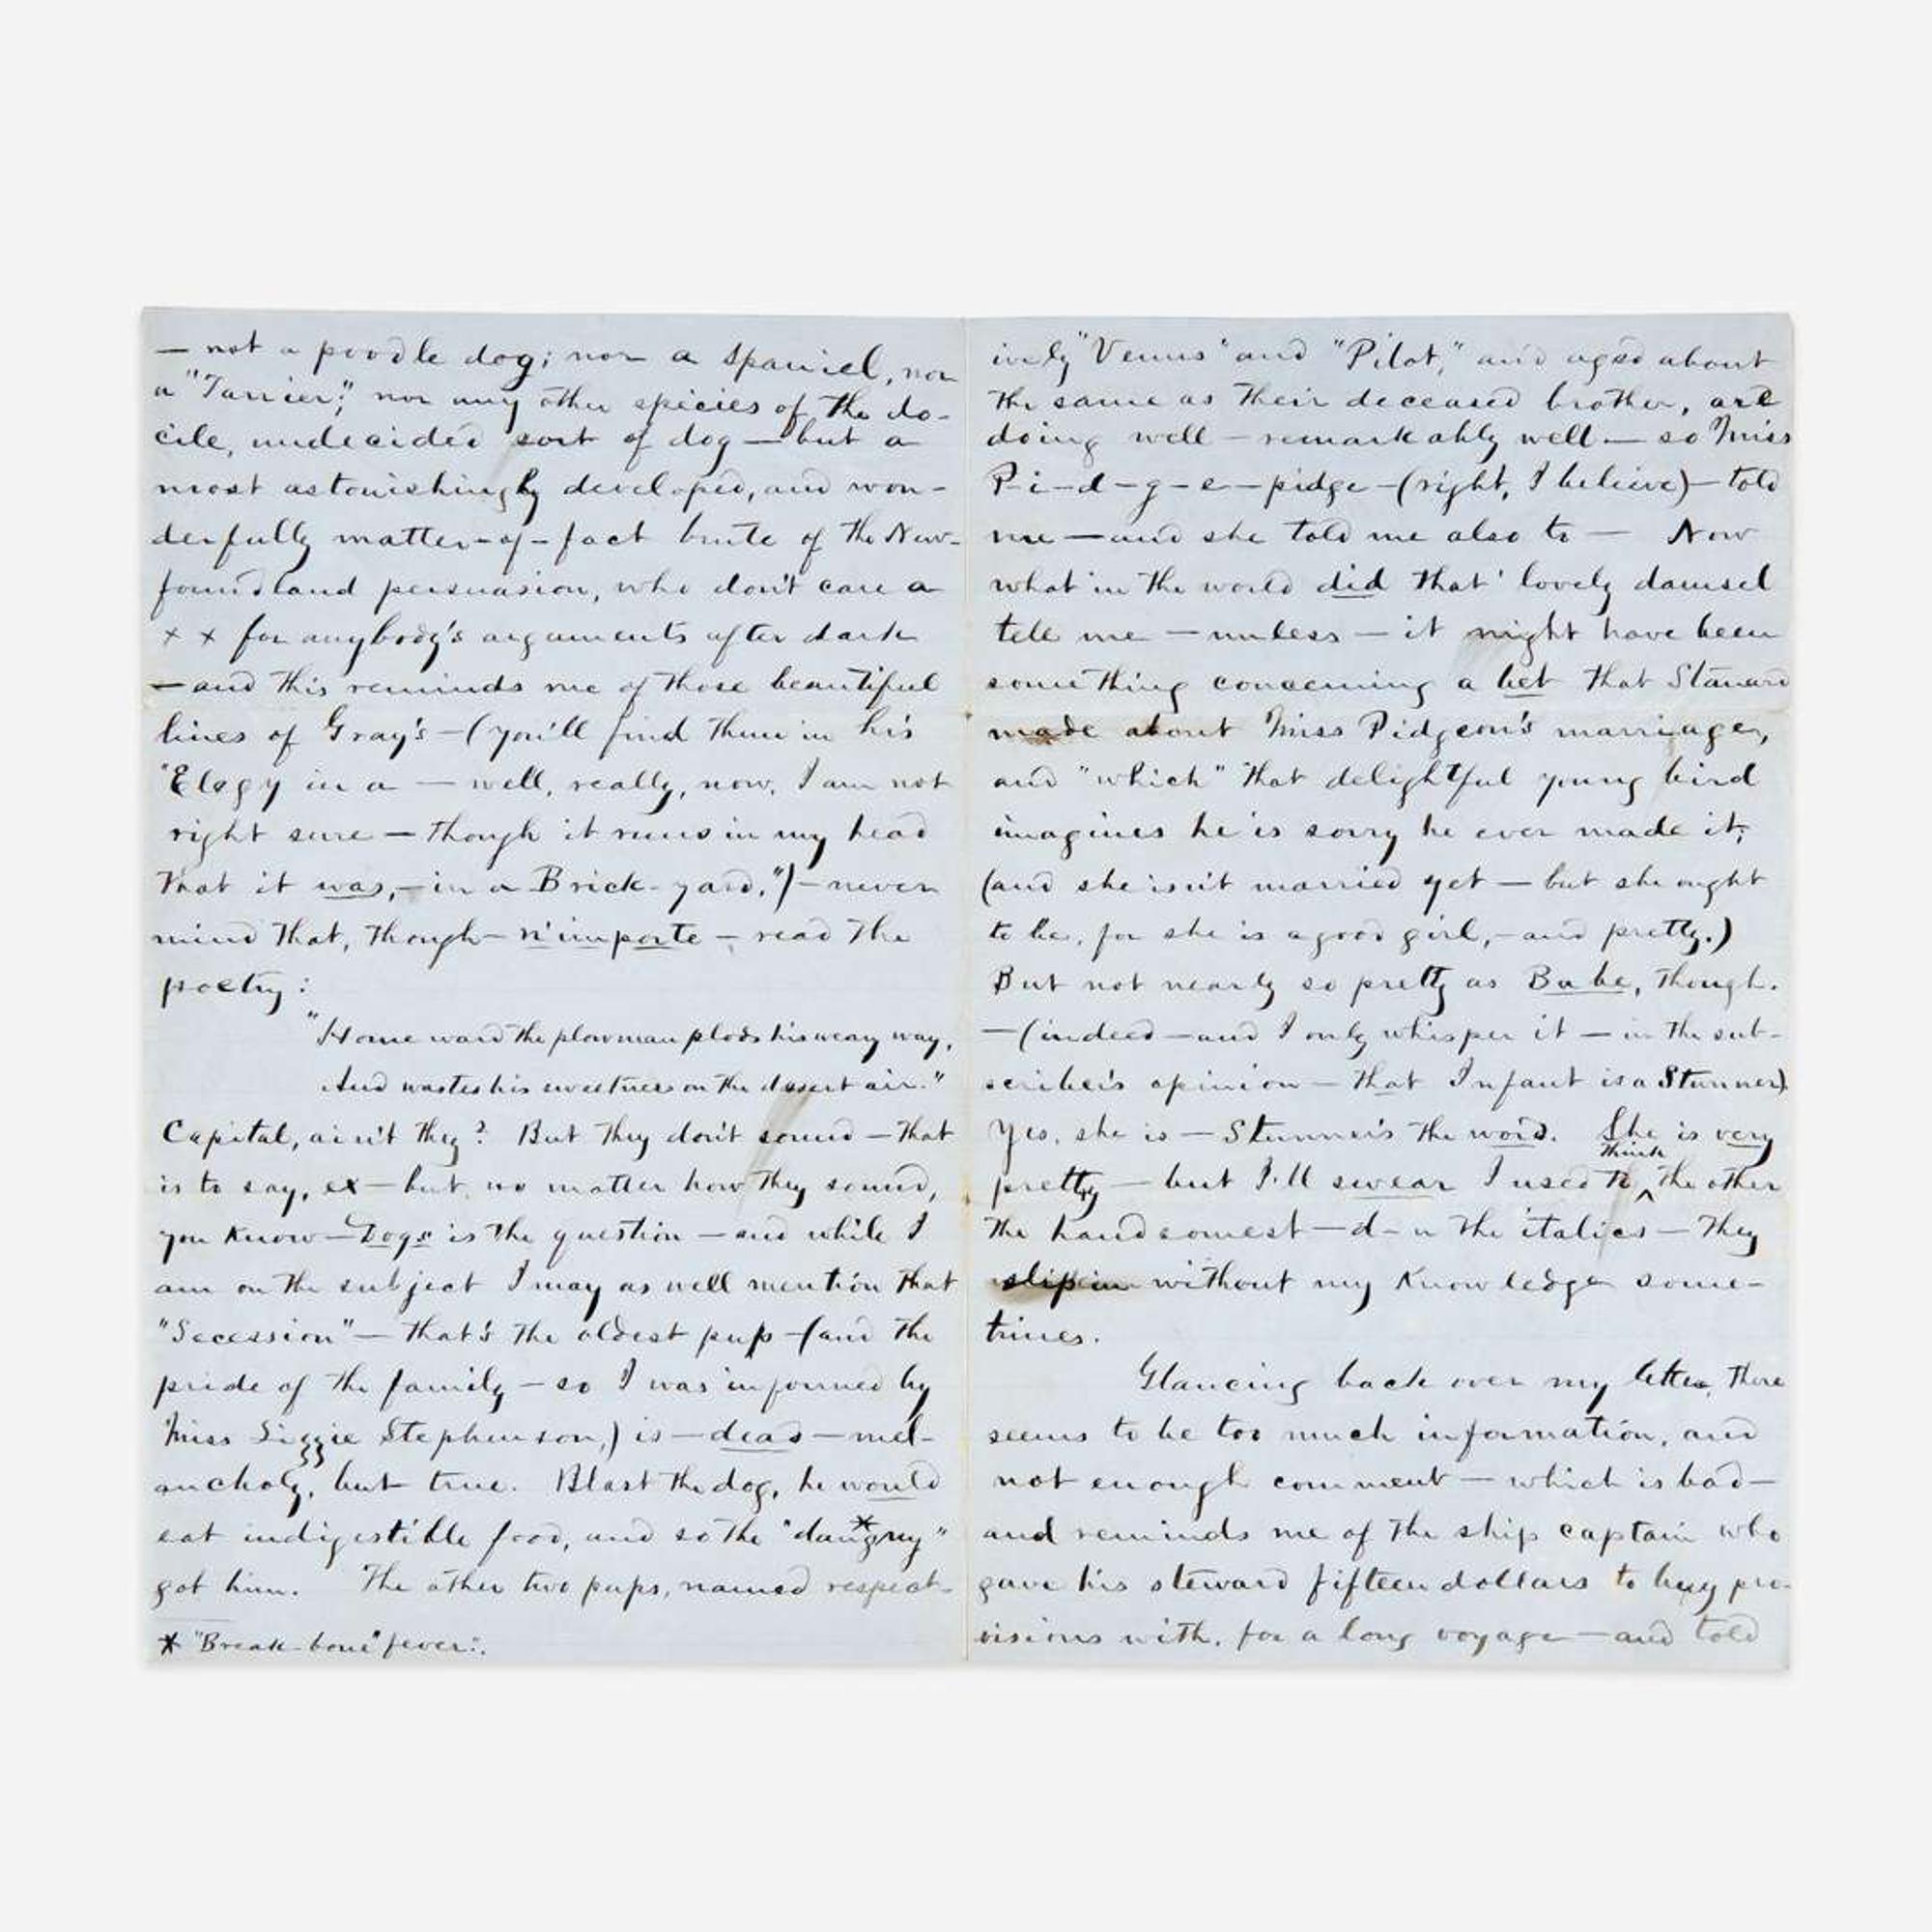 — not a poodle dog; nor a spaniel, nor
a "Tarrier"; nor any other species of the do-
cile, undecided sort of dog — but a
most astonishingly developed, and won-
derfully matter-of-fact brute of the New-
foundland persuasion, who don't care a
x x for anybody's arguments after dark
— and this reminds me of those beautiful
lines of Gray's — (you'll find them in his
"Elegy in a — well, really, now, I am not
right sure — though it runs in my head
that it was, — in a Brick-yard,") — never
mind that, though — n'importe — read the
poetry:
"Homeward the plowman plods his weary way,
And wastes his sweetness on the desert air."
Capital, ain't they? But they don't sound — that
is to say, ex — but, no matter how they sound,
you know — Dogs is the question — and while I
am on the subject I may as well mention that
"Secession" — that's the oldest pup — (and the
pride of the family — so I was informed by
Miss Lizzie Stephenson,) is — dead — mel-
ancholy, but true. Blast the dog, he would
eat indigestible food, and so the "dang*ruy"
got him. The other two pups, named respect-
* "Break-bone" fever".
ively "Venus" and "Pilot," and aged about
the same as their deceased brother, are
doing well — remarkably well — so Miss
P-i-d-g-e — pidge — (right, I believe) — told
me — and she told me also to — Now
what in the world did that lovely damsel
tell me — unless — it might have been
something concerning a bet that Stanard
made about Miss Pidgeon's marriage,
and "which" that delightful young bird
imagines he is sorry he ever made it;
(and she isn't married yet — but she ought
to be, for she is a good girl, — and pretty.)
But not nearly so pretty as Babe, though.
— (indeed — and I only whisper it — in the sub-
scriber's opinion — that Infant is a Stunner).
Yes, she is — Stunner's the word. She is very
pretty — but I'll swear I used to ^think the other
the handsomest — d-n the italics — they
slip in without my knowledge some-
times.
Glancing back over my letter, there
seems to be too much information, and
not enough comment — which is bad —
and reminds me of the ship captain who
gave his steward fifteen dollars to buy pro-
visions with, for a long voyage — and told